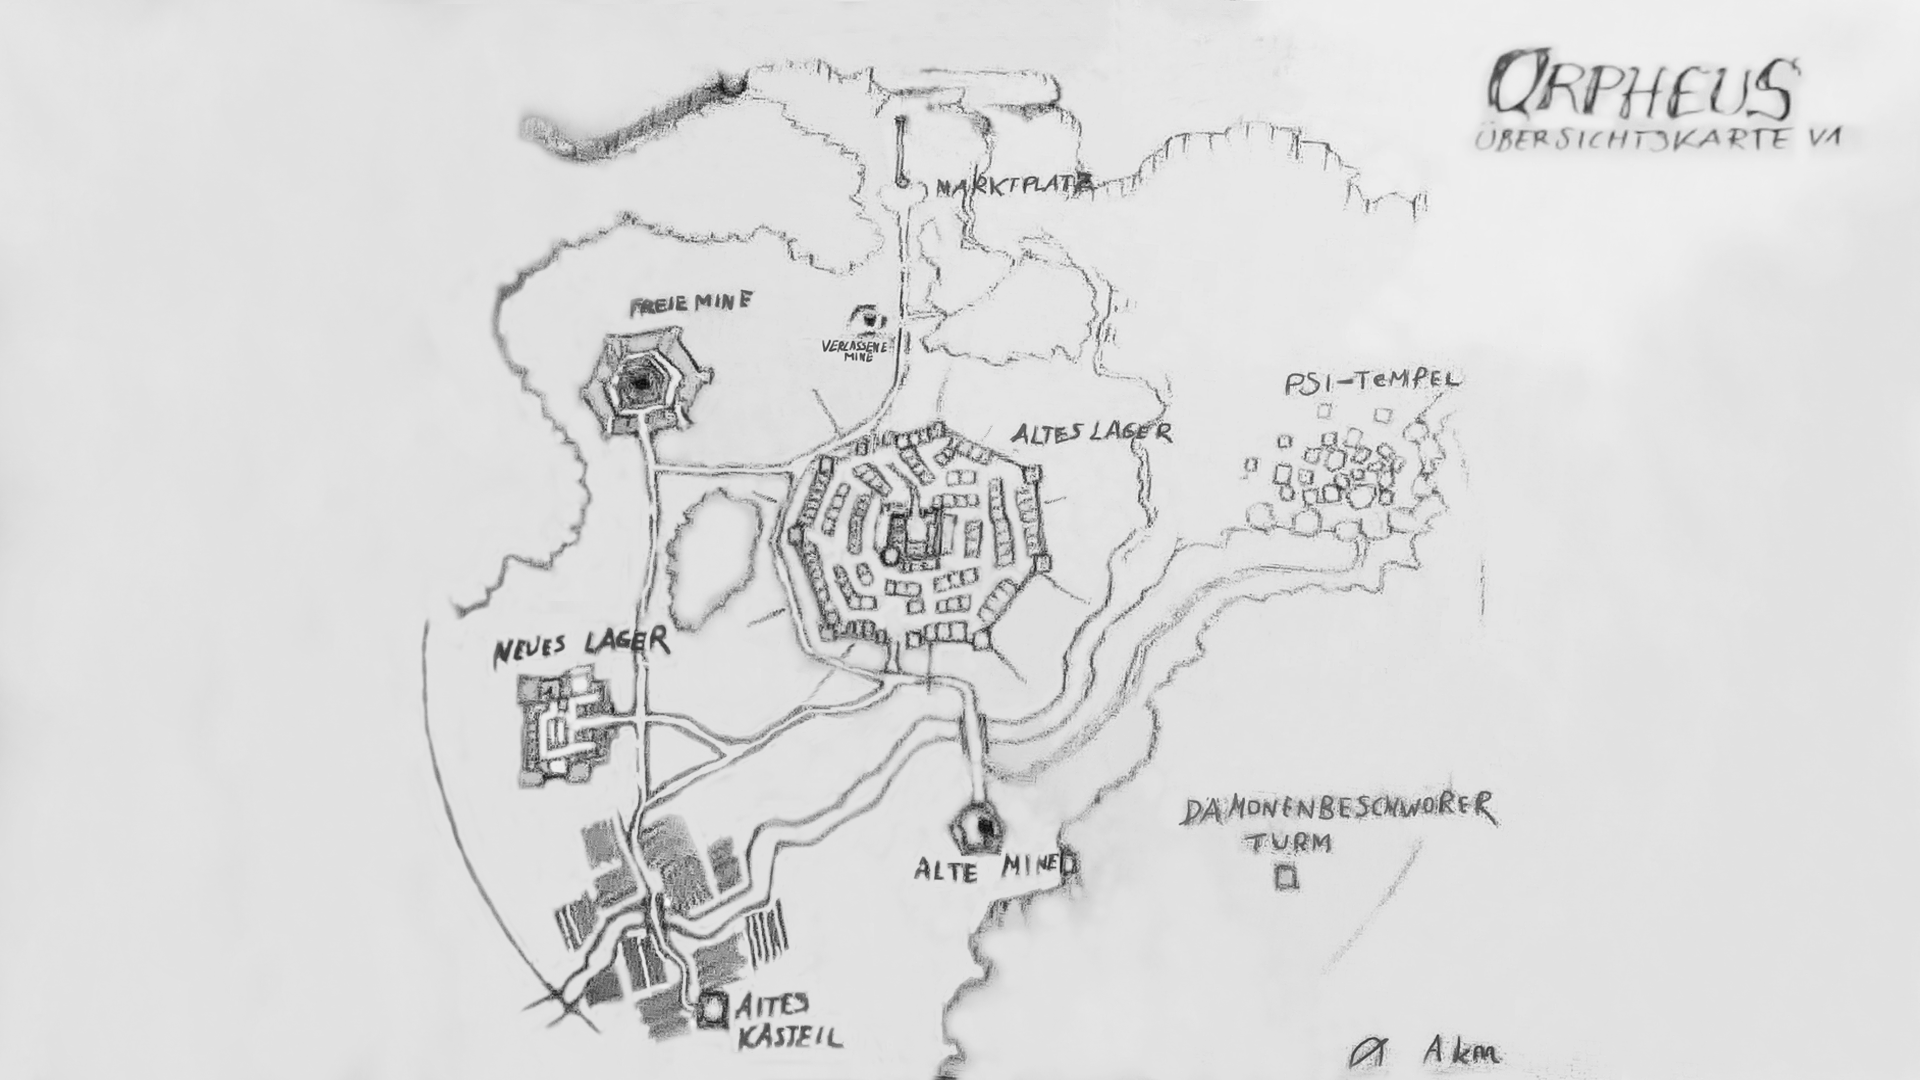 ORPHEUS
ÜBERSICHTSKARTE V1
MARKTPLATZ
FREIE MINE
VERLASSENE
MINE
PSI-TEMPEL
ALTES LAGER
NEUES LAGER
DÄMONENBESCHWÖRER
TURM
ALTE MINE
ALTES
KASTELL
1 km